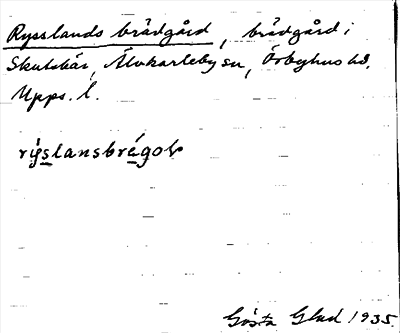 Rysslands brädgård, brädgård i
Skutskär, Älvkarleby sn, Örbyhus hd,
Upps. l.
rýslansbrégoḷ
Gösta Glad 1935.